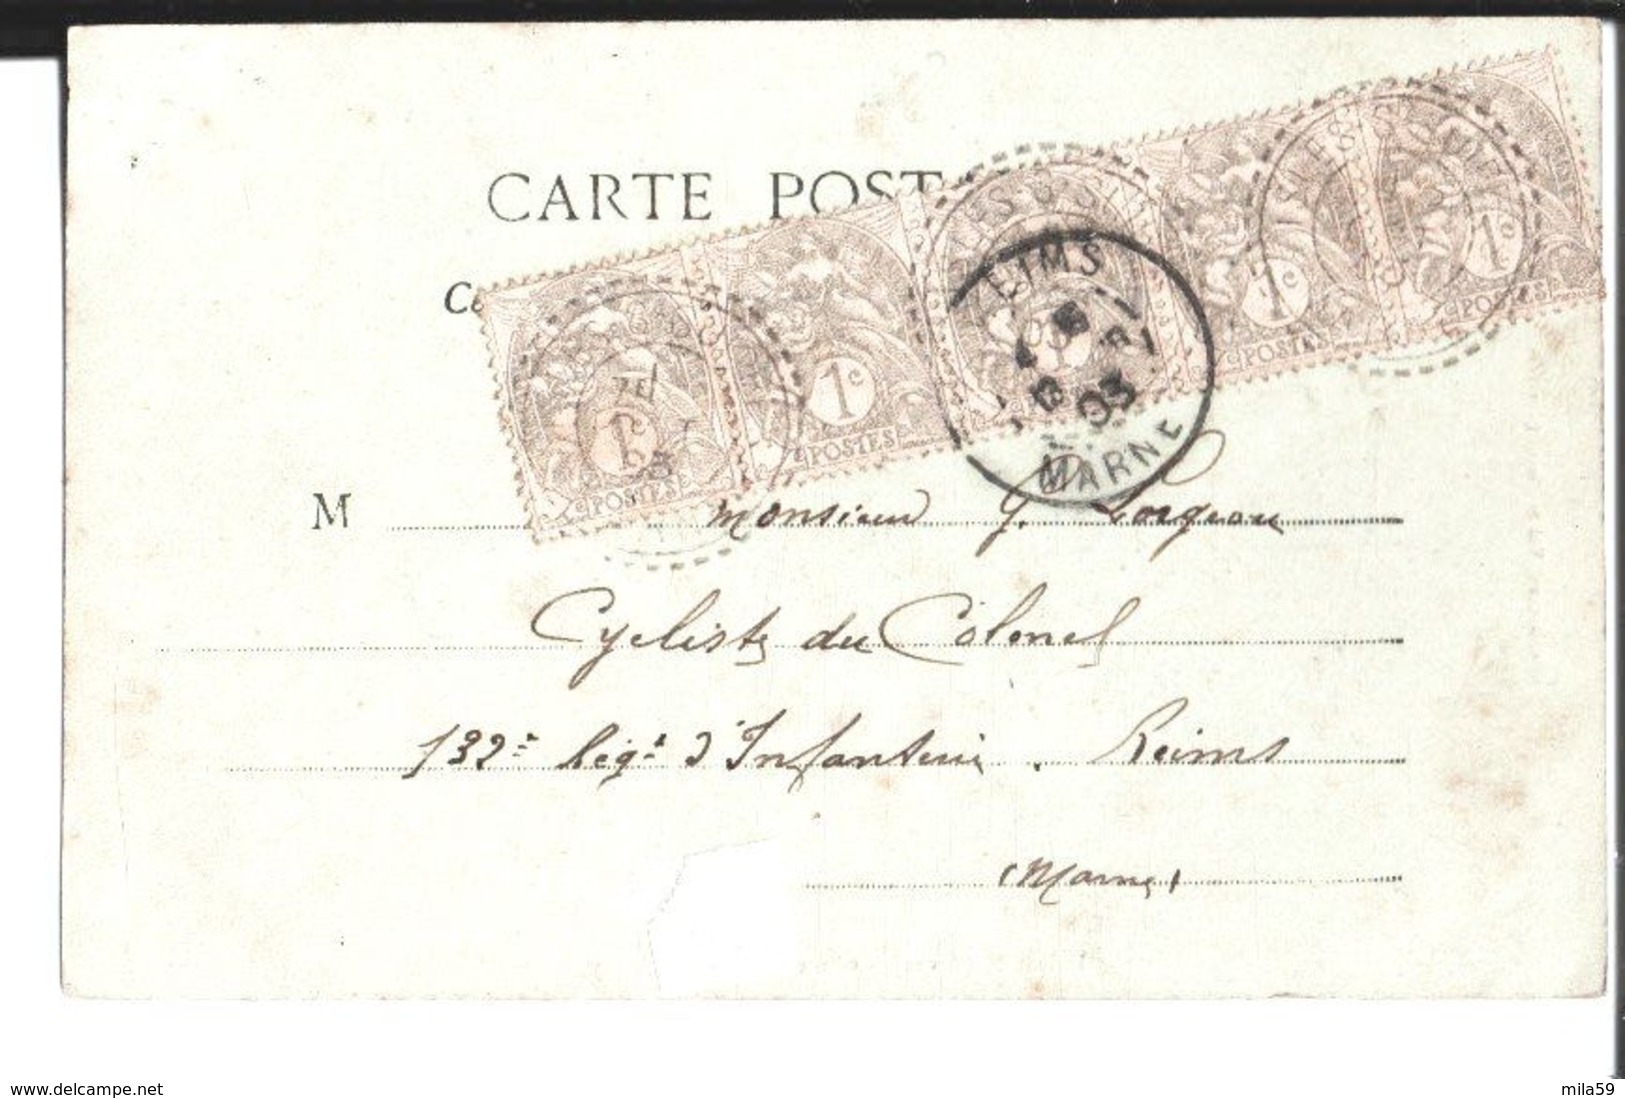 CARTE POST
M
monsieur G. Lorgeou
Cycliste du Colonel
132e Régt d'Infanterie. Reims
(Marne)
1c POSTES
1c POSTES
1c
1c POSTES
1c POSTES
EIMS
03
MARNE
www.delcampe.net
mila59